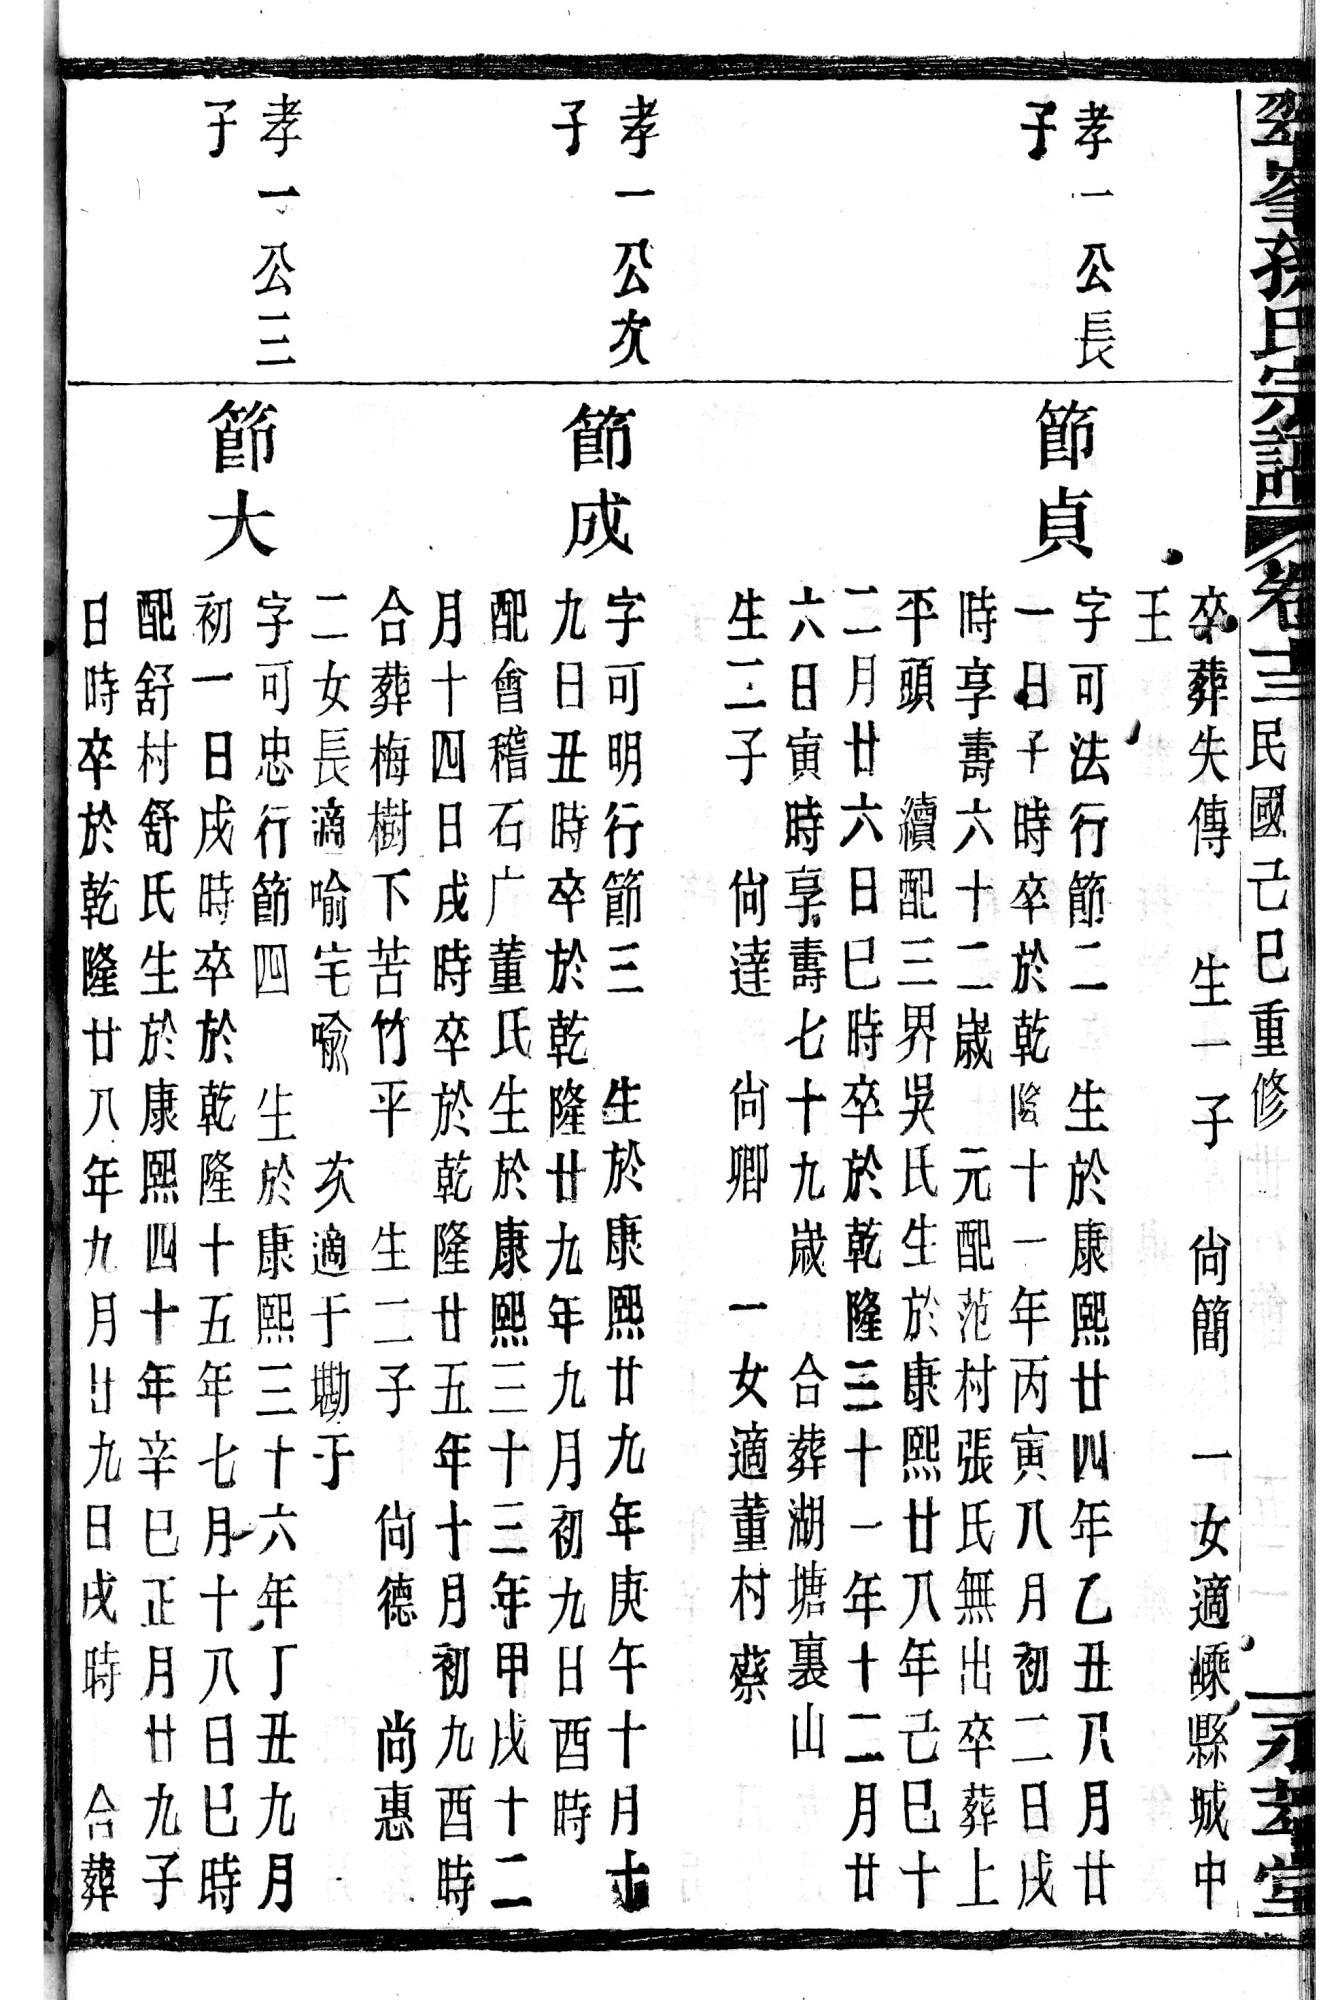 翠峯孫氏宗譜 卷十三 民國己巳重修 永芝堂
卒葬失傳 生一子 尙簡 一女適嵊縣城中
王
孝一公長
子
節貞
字可法行節二 生於康熙廿四年乙丑八月廿
一日子時卒於乾隆十一年丙寅八月初二日戌
時享壽六十二歲 元配范村張氏無出卒葬上
平頭 續配三界吳氏生於康熙廿八年己巳十
二月廿六日巳時卒於乾隆三十一年十二月廿
六日寅時享壽七十九歲 合葬湖塘裏山
生二子 尙達 尙卿 一女適董村蔡
孝一公次
子
節成
字可明行節三 生於康熙廿九年庚午十月十
九日丑時卒於乾隆廿九年九月初九日酉時
配會稽石广董氏生於康熙三十三年甲戌十二
月十四日戌時卒於乾隆廿五年十月初九酉時
合葬梅樹下苦竹平 生二子 尙德 尙惠
二女長適喻宅喻 次適于勘于
孝一公三
子
節大
字可忠行節四 生於康熙三十六年丁丑九月
初一日戌時卒於乾隆十五年七月十八日巳時
配舒村舒氏生於康熙四十年辛巳正月廿九子
日時卒於乾隆廿八年九月廿九日戌時 合葬